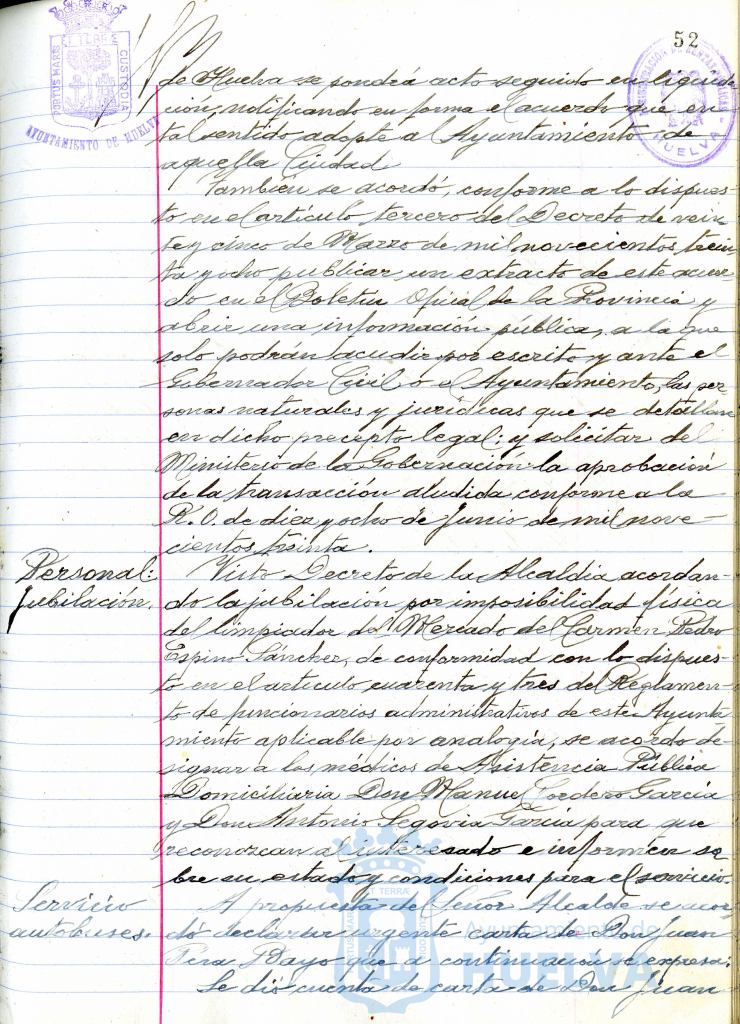 52
PORTUS MARIS
ET TERRE
CUSTODIA
AYUNTAMIENTO DE HUELVA
HUELVA
de Huelva se pondrá acto seguido en liquida-
ción, notificando en forma el acuerdo que en
tal sentido adopte al Ayuntamiento de
aquella Ciudad
También se acordó, conforme a lo dispues-
to en el artículo tercero del Decreto de vein
te y cinco de Marzo de mil novecientos trein
ta y ocho publicar un extracto de este acuer-
do en el Boletín Oficial de la Provincia y
abrir una información pública, a la que
solo podrán acudir por escrito y ante el
Gobernador Civil o el Ayuntamiento, las per
sonas naturales y jurídicas que se detallan
en dicho precepto legal: y solicitar del
Ministerio de la Gobernación la aprobación
de la transacción aludida conforme a la
R. O. de diez y ocho de Junio de mil nove-
cientos treinta.
Personal:
Jubilación.
Visto Decreto de la Alcaldía acordan-
do la jubilación por imposibilidad física
del limpiador del Mercado del Carmen Pedro
Espino Sánchez, de conformidad con lo dispues-
to en el artículo cuarenta y tres del Reglamen-
to de funcionarios administrativos de este Ayunta-
miento aplicable por analogía, se acordo de-
signar a los médicos de Asistencia Pública
Domiciliaria Don Manuel Cordero García
y Don Antonio Segovia García para que
reconozcan al interesado e informen so
bre su estado y condiciones para el servicio.
Servicio
autobuses.
A propuesta del Señor Alcalde se acor-
dó declarar urgente carta de Don Juan
que a continuación se expresa:
Se dió cuenta de carta de Don Juan
Ayuntamiento de
HUELVA